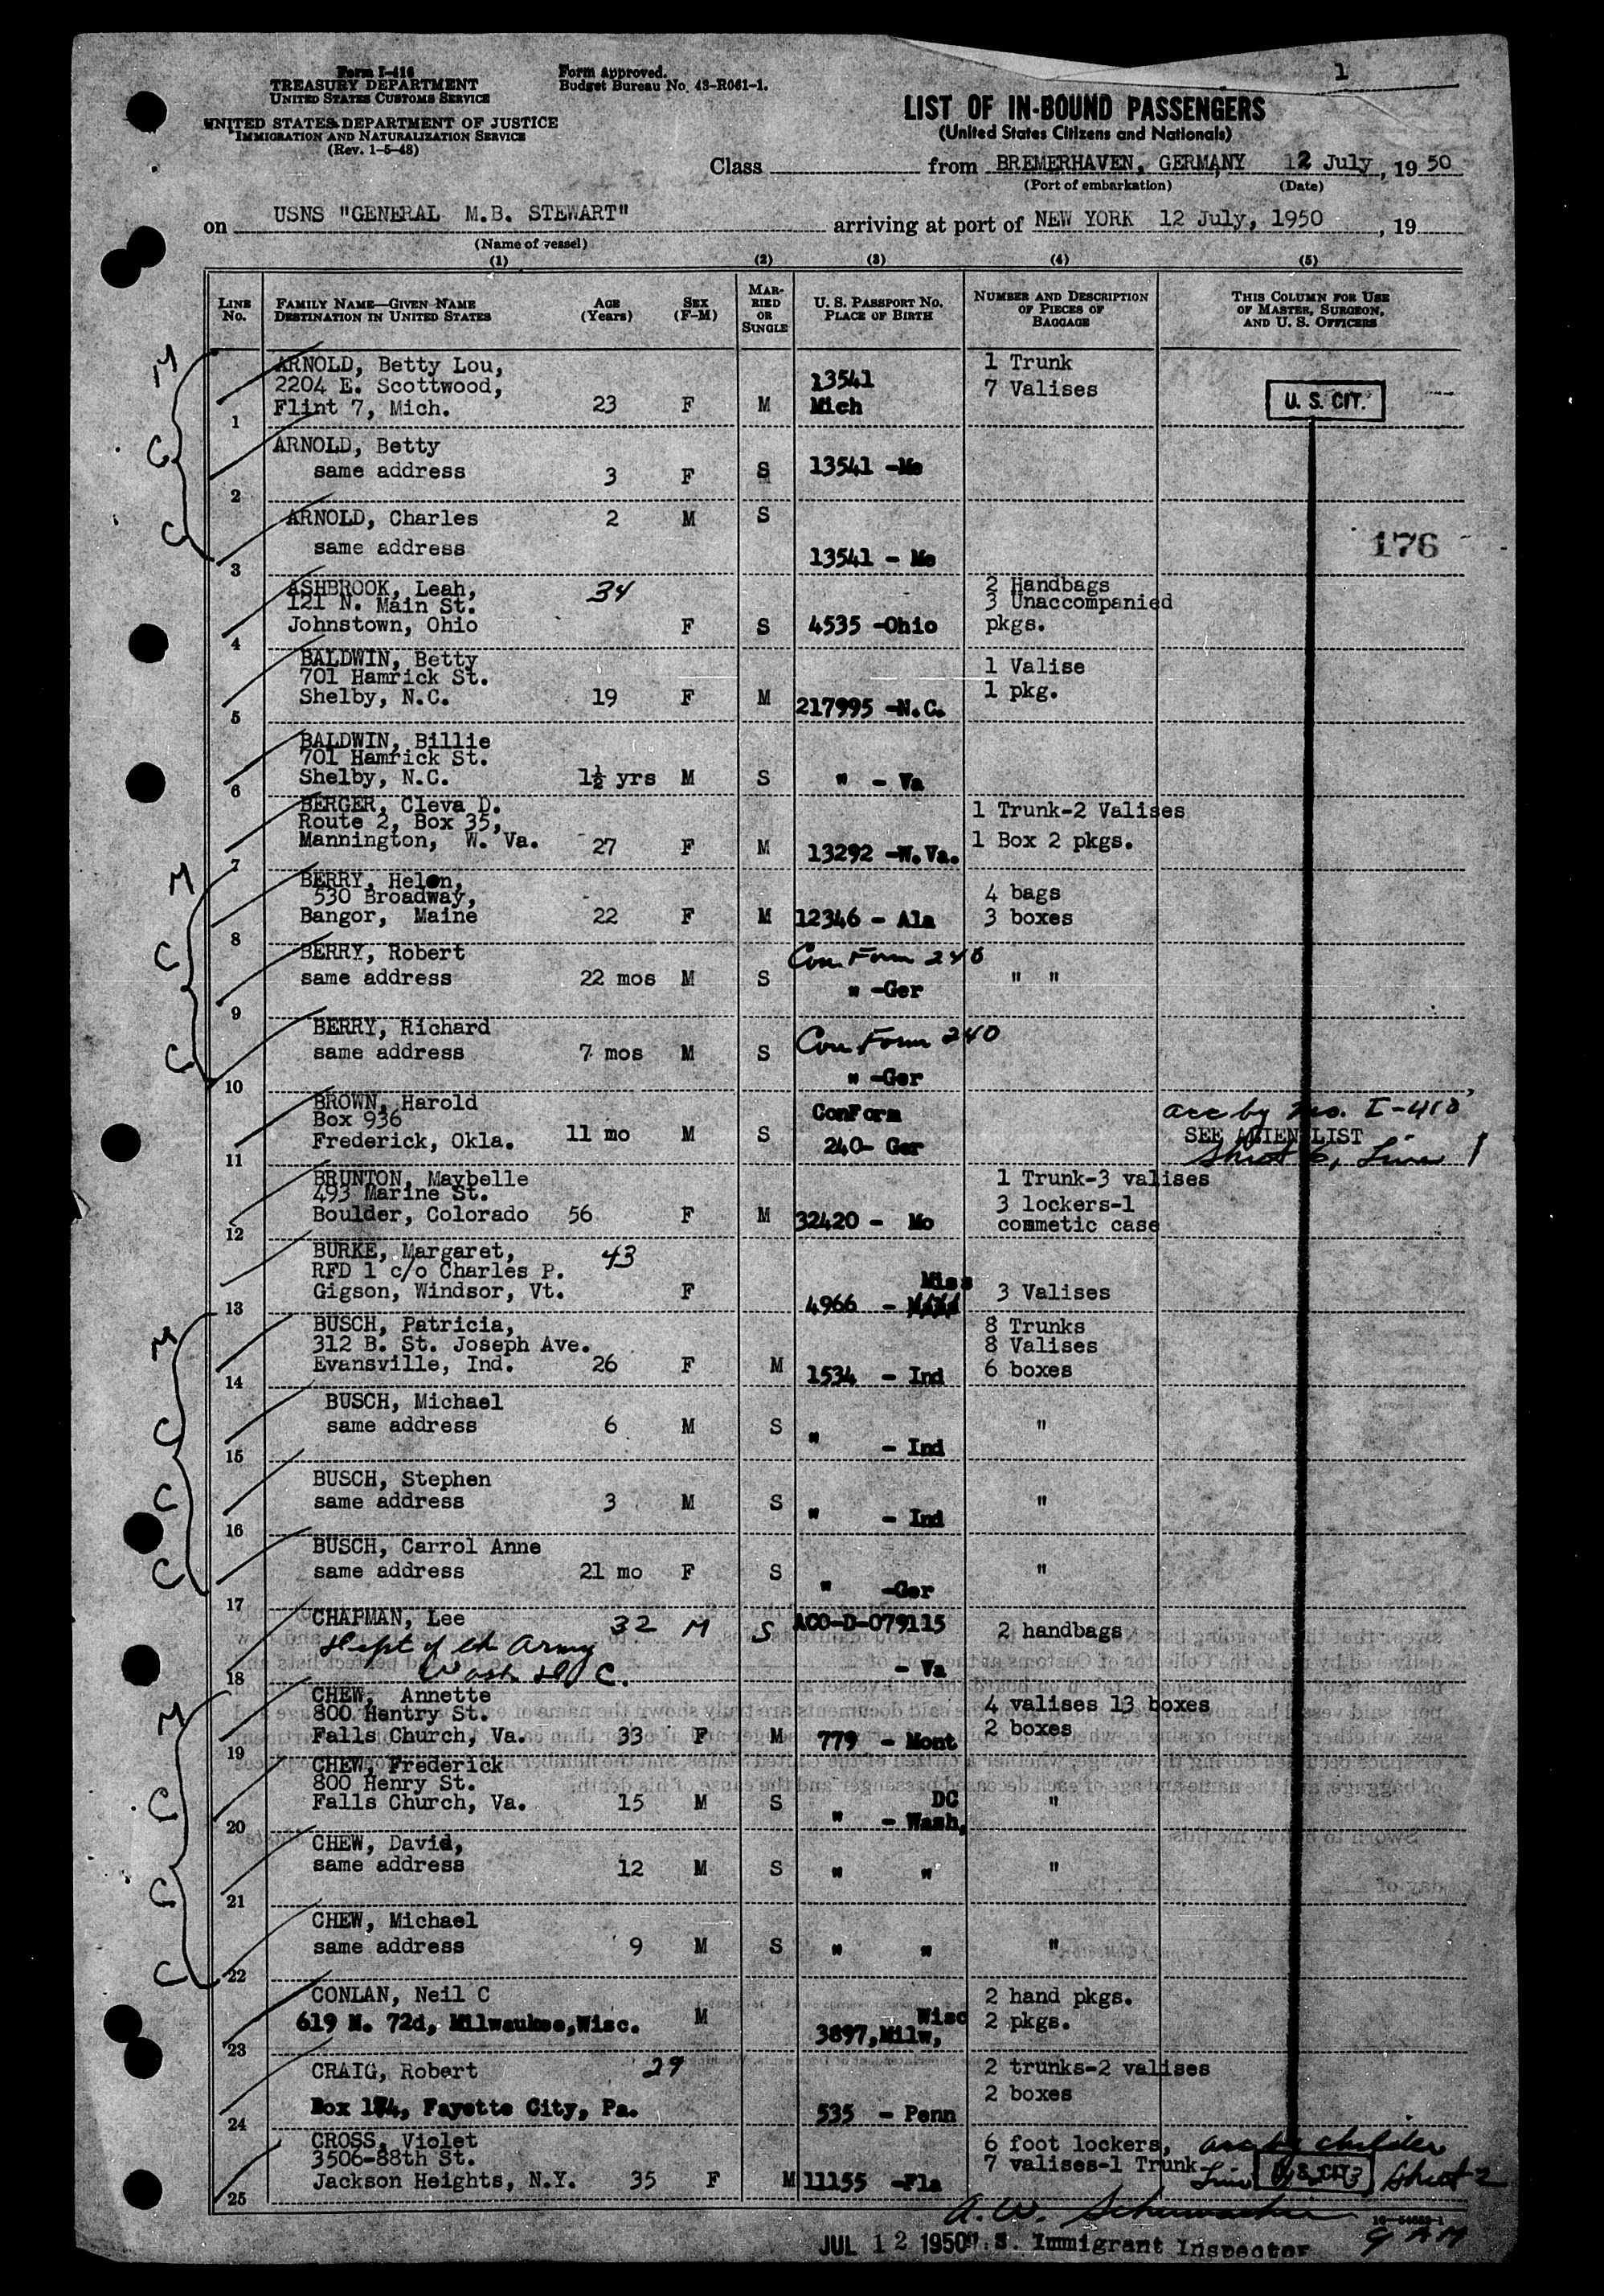 1
Form I-416
TREASURY DEPARTMENT
UNITED STATES CUSTOMS SERVICE
UNITED STATES DEPARTMENT OF JUSTICE
IMMIGRATION AND NATURALIZATION SERVICE
(Rev. 1-5-48)
Form Approved.
Budget Bureau No. 43-R061-1.
LIST OF IN-BOUND PASSENGERS
(United States Citizens and Nationals)
Class from BREMERHAVEN, GERMANY 12 July, 19 50
(Port of embarkation) (Date)
on USNS "GENERAL M.B. STEWART" arriving at port of NEW YORK 12 July, 1950, 19
(Name of vessel)
(1) (2) (3) (4) (5)
LINE No. FAMILY NAME—GIVEN NAME DESTINATION IN UNITED STATES AGE (Years) SEX (F-M) MARRIED OR SINGLE U. S. PASSPORT NO. PLACE OF BIRTH NUMBER AND DESCRIPTION OF PIECES OF BAGGAGE THIS COLUMN FOR USE OF MASTER, SURGEON, AND U. S. OFFICERS
M ARNOLD, Betty Lou, 1 Trunk
2204 E. Scottwood, 13541 7 Valises
1 Flint 7, Mich. 23 F M Mich U. S. CIT.
C ARNOLD, Betty
2 same address 3 F S 13541 -Me
C ARNOLD, Charles 2 M S 176
3 same address 13541 - Me
ASHBROOK, Leah, 34 2 Handbags
121 N. Main St. 3 Unaccompanied
4 Johnstown, Ohio F S 4535 -Ohio pkgs.
BALDWIN, Betty 1 Valise
701 Hamrick St. 1 pkg.
5 Shelby, N.C. 19 F M 217995 -N.C.
BALDWIN, Billie
701 Hamrick St.
6 Shelby, N.C. 1½ yrs M S " - Va
BERGER, Cleva D. 1 Trunk-2 Valises
Route 2, Box 35,
7 Mannington, W. Va. 27 F M 13292 -W.Va. 1 Box 2 pkgs.
M BERRY, Helen,
530 Broadway, 4 bags
8 Bangor, Maine 22 F M 12346 - Ala 3 boxes
C BERRY, Robert Con Form 240
9 same address 22 mos M S " -Ger " "
C BERRY, Richard Con Form 240
10 same address 7 mos M S " -Ger
BROWN, Harold ConForm acc by mo. I-418
Box 936 SEE ALIEN LIST
11 Frederick, Okla. 11 mo M S 240- Ger Sheet 6, Line 1
BRUNTON, Maybelle 1 Trunk-3 valises
493 Marine St. 3 lockers-1
12 Boulder, Colorado 56 F M 32420 - Mo commetic case
BURKE, Margaret, 43
RFD 1 c/o Charles P. Miss
13 Gigson, Windsor, Vt. F 4966 - 3 Valises
M BUSCH, Patricia, 8 Trunks
312 B. St. Joseph Ave. 8 Valises
14 Evansville, Ind. 26 F M 1534 - Ind 6 boxes
C BUSCH, Michael
15 same address 6 M S " - Ind "
C BUSCH, Stephen
16 same address 3 M S " - Ind "
C BUSCH, Carrol Anne
17 same address 21 mo F S " -Ger "
CHAPMAN, Lee 32 M S ACO-D-079115 2 handbags
Dept of th Army
18 Wash D C. - Va
M CHEW, Annette 4 valises 13 boxes
800 Hentry St. 2 boxes
19 Falls Church, Va. 33 F M 779 - Mont
C CHEW, Frederick
800 Henry St. DC
20 Falls Church, Va. 15 M S " - Wash, "
C CHEW, David,
21 same address 12 M S " " "
C CHEW, Michael
22 same address 9 M S " " "
CONLAN, Neil C 2 hand pkgs.
23 619 N. 72d, Milwaukee,Wisc. M 3897,Milw, Wisc 2 pkgs.
CRAIG, Robert 29 2 trunks-2 valises
2 boxes
24 Box 174, Fayette City, Pa. 535 - Penn
CROSS, Violet 6 foot lockers, acc by childer
3506-88th St. 7 valises-1 Trunk
25 Jackson Heights, N.Y. 35 F M 11155 -Fla Line U. S. CIT. Sheet 2
A. W. Schumacher
JUL 12 1950 U. S. Immigrant Inspector 9 AM